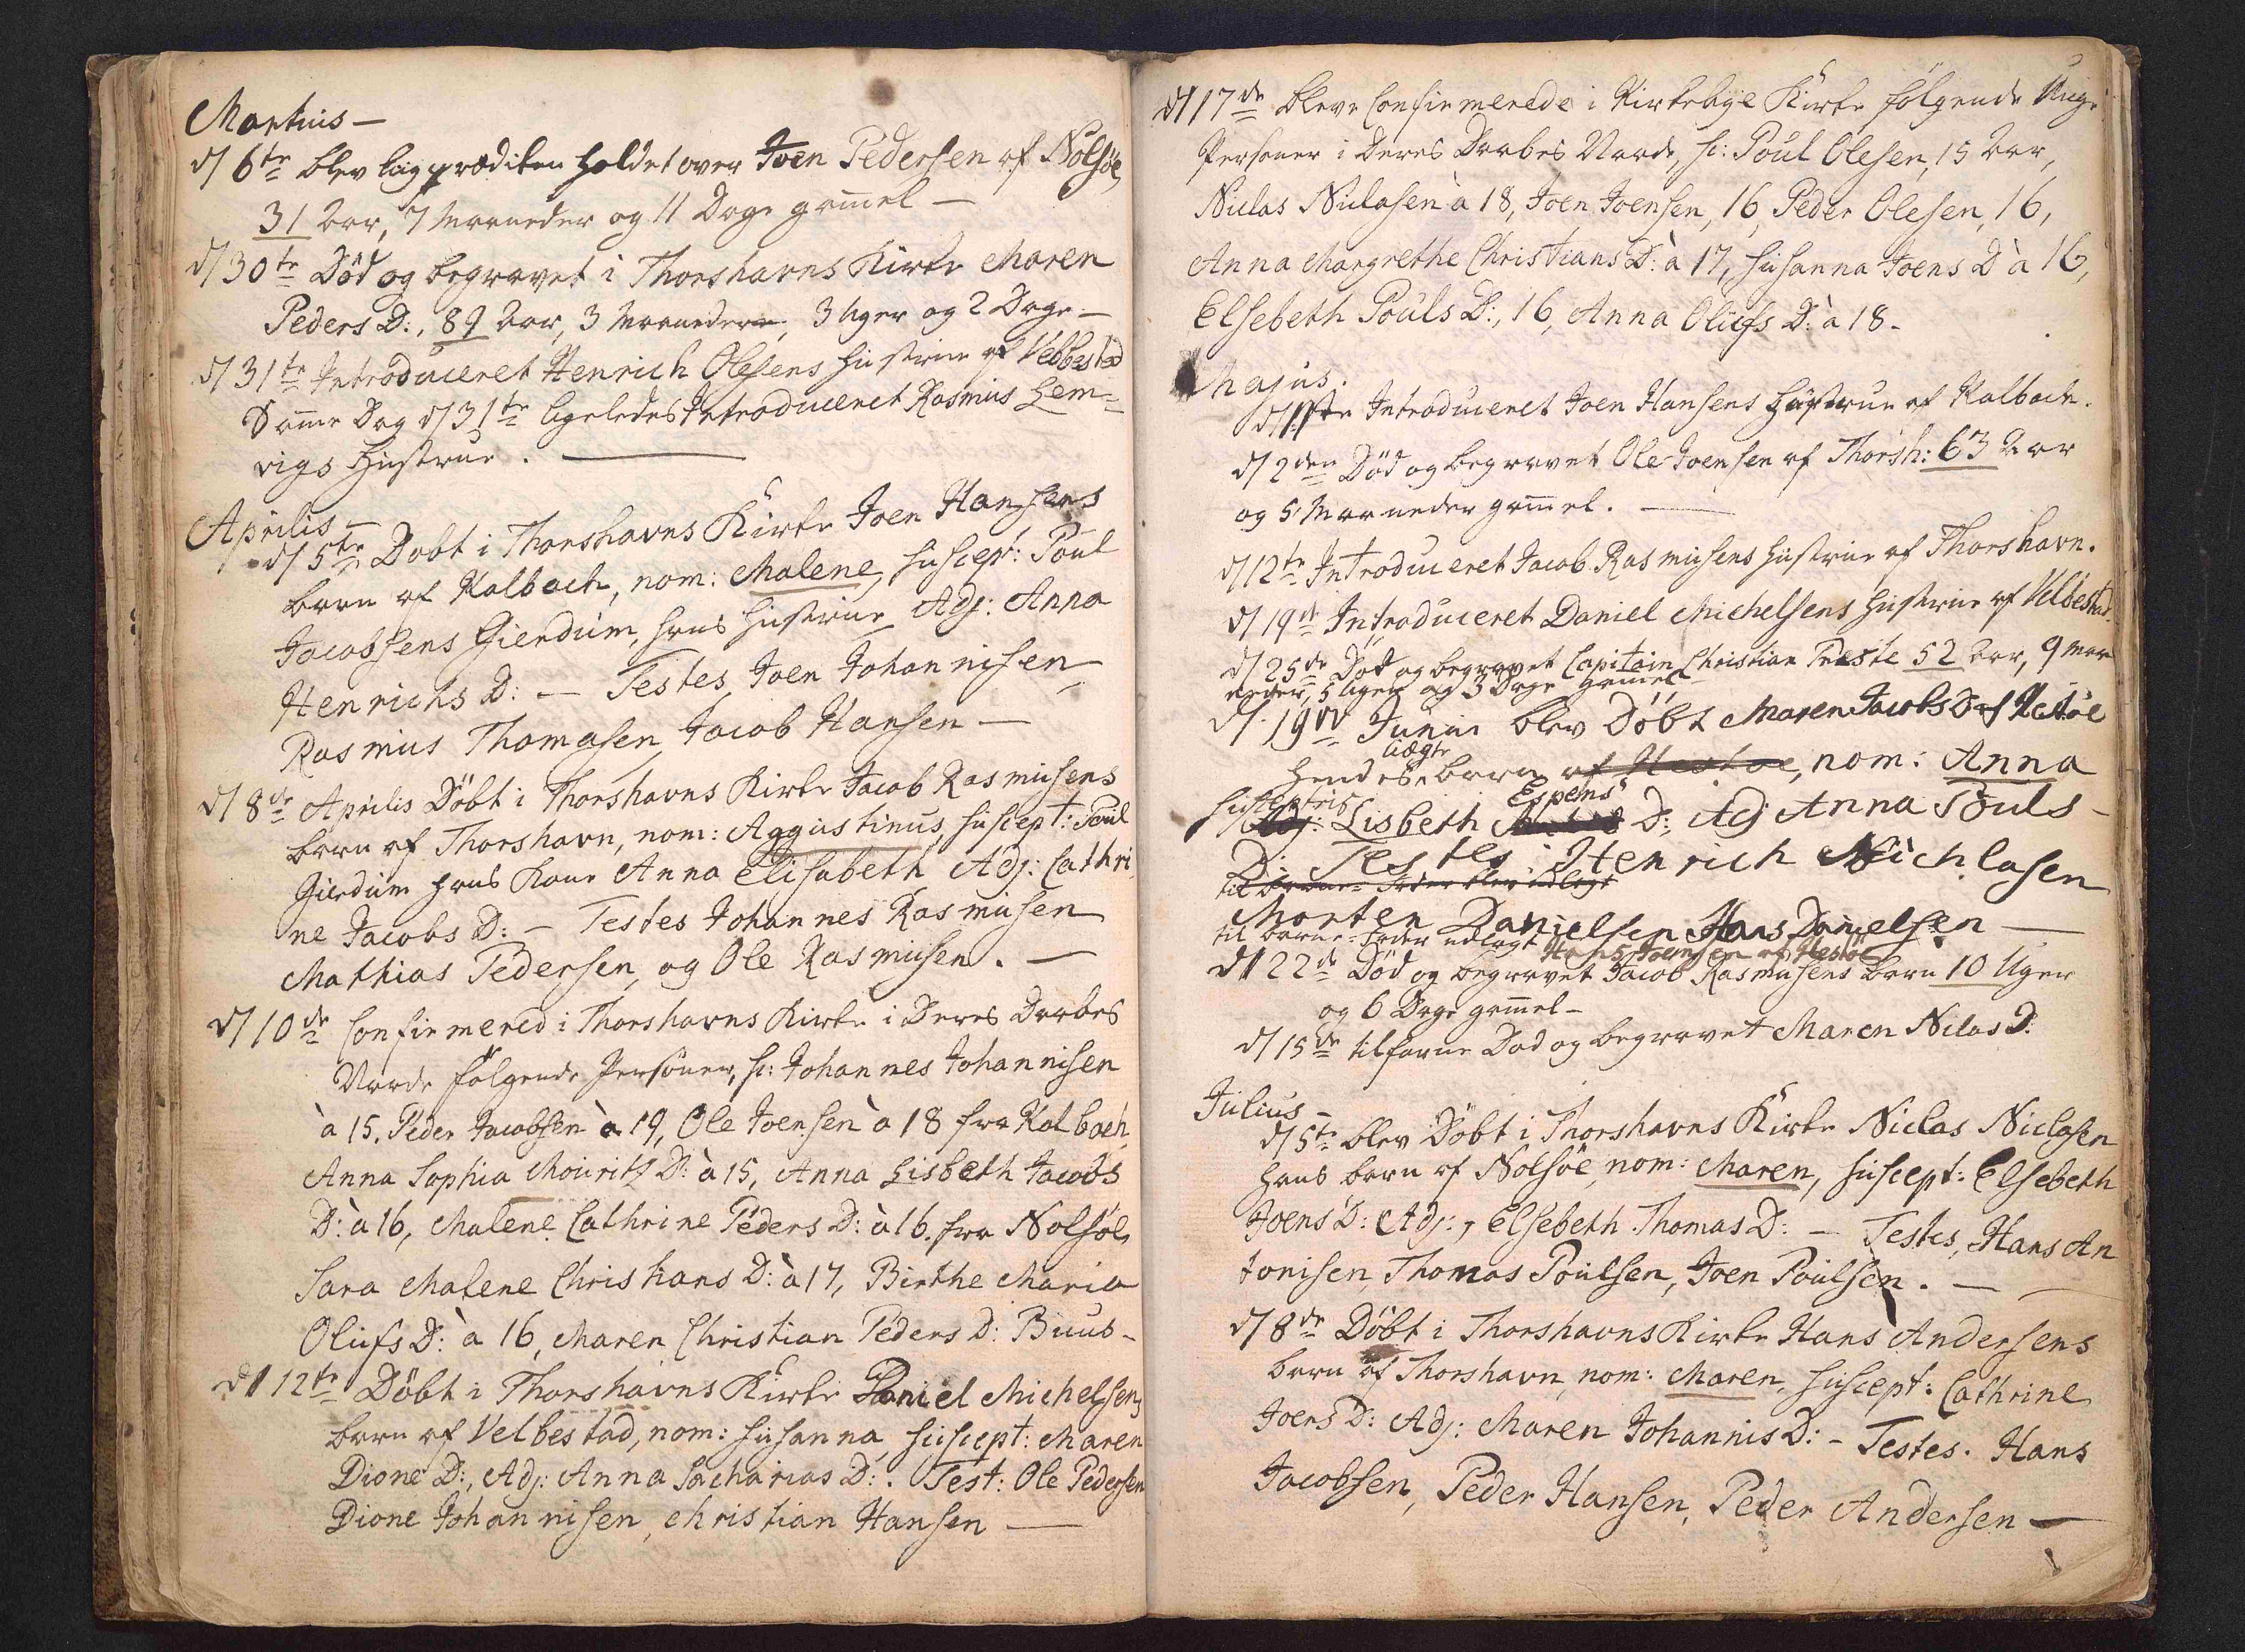 Martius –
d/ 6te blev liigprædiken holdet over Joen Pedersen af Nolsöe,
31 Aar, 7 Maaneder og 11 Dage gam̄el –
d/ 30te Död og begravet i Thorshavns Kirke Maren
Peders D:, 89 Aar, 3 Maaneder, 3 Uger og 2 Dage –
d/ 31te Introduceret Henrich Olesens Hustrue af Velbestad
Sam̄e Dag d/ 31te ligeledes Introduceret Rasmus Lem=
vigs Hustrue. –
Aprilis –
d/ 5te Döbt i Thorshavns Kirke Joen Hansens
barn af Kalbach, nom: Malene, suscept: Poul
Jacobsens Giendum, hans Hustrue, Adj: Anna
Henrichs D: – Testes, Joen Johannisen
Rasmus Thomasen, Jacob Hansen –
d/ 8de Aprilis Döbt i Thorshavns Kirke Jacob Rasmusens
barn af Thorshavn, nom: Aggustinus, suscept: Poul
Giedum hans Kone Anna Elisabeth Adj: Cathri
ne Jacobs D: – Testes Johannes Rasmusen
Mathias Pedersen, og Ole Rasmusen. –
d/ 10de Confirmered i Thorshavns Kirke i Deres Daabes
Naade fölgende Personer, sc: Johannes Johannisen
à 15. Peder Jacobsen à 19, Ole Joensen à 18 fra Kalbach,
Anna Sophia Mouritz D: à 15, Anna Lisbeth Jacobs
D: à 16, Malene Cathrine Peders D: à 16. fra Nolsöe,
Sara Malene Christians D: à 17, Birthe Maria
Olufs D: à 16, Maren Christian Peders D: Buus –
d/ 12te Döbt i Thorshavns Kirke Daniel Michelsens
barn af Velbestad, nom: Susanna, suscept: Maren
Dione D:, Adj: Anna Sacharias D:. Test: Ole Pedersen
Dione Johannisen, Christian Hansen –
d/ 17de bleve Confirmerede i Kirkebÿe Kirke fölgende Unge
Personer i Deres Daabes Naade, sc: Poul Olesen, 15 Aar,
Niclas Niclasen à 18, Joen Joensen, 16, Peder Olesen, 16,
Anna Margrethe Christians D: à 17, Susanna Joens D à 16,
Elsebeth Pouls D:, 16, Anna Olufs D: à 18.
Majus.
d/ 1ste Introduceret Joen Hansens Hustrue af Kalbach.
d/ 2den Död og begravet Ole Joensen af Thorsh: 63 Aar
og 5 Maaneder gam̄el. –
d/ 12te Introduceret Jacob Rasmusens Hustrue af Thorshavn.
d/ 19de Introduceret Daniel Michelsens Hustrue af Velbestad.
d/ 25de Död og begravet Capitain Christian Preste 52 Aar, 9 Maa
neder, 5 Uger og 3 Dage gam̄el
d/ 19de Junii blev Döbt Maren Jacobs D af Hestöe
uægte
hendes barn af Hestöe, nom: Anna
Espens
susceptris Adj: Lisbeth D: Adj Anna Pouls –
D: Testes: Henrich Nichlasen
til Barne-Fader blev udlagt
Morten Danielsen Hans Danielsen –
til barne-fader udlagt Hans Joensen af Hestöe
d/ 22de Död og begravet Jacob Rasmusens barn 10 Uger
og 6 Dage gam̄el –
d/ 15de tilforne Död og begravet Maren Niclas D.
Julius –
d/ 5te blev Döbt i Thorshavns Kirke Niclas Niclasen
hans barn af Nolsöe, nom: Maren, suscept: Elsebeth
Joens D: Adj:, Elsebeth Thomas D: – Testes, Hans An
tonisen, Thomas Poulsen, Joen Poulsen. –
d/ 8de Döbt i Thorshavns Kirke Hans Andersens
barn af Thorshavn, nom: Maren, suscept: Cathrine
Joens D: Adj: Maren Johannis D: – Testes. Hans
Jacobsen, Peder Hansen, Peder Andersen –